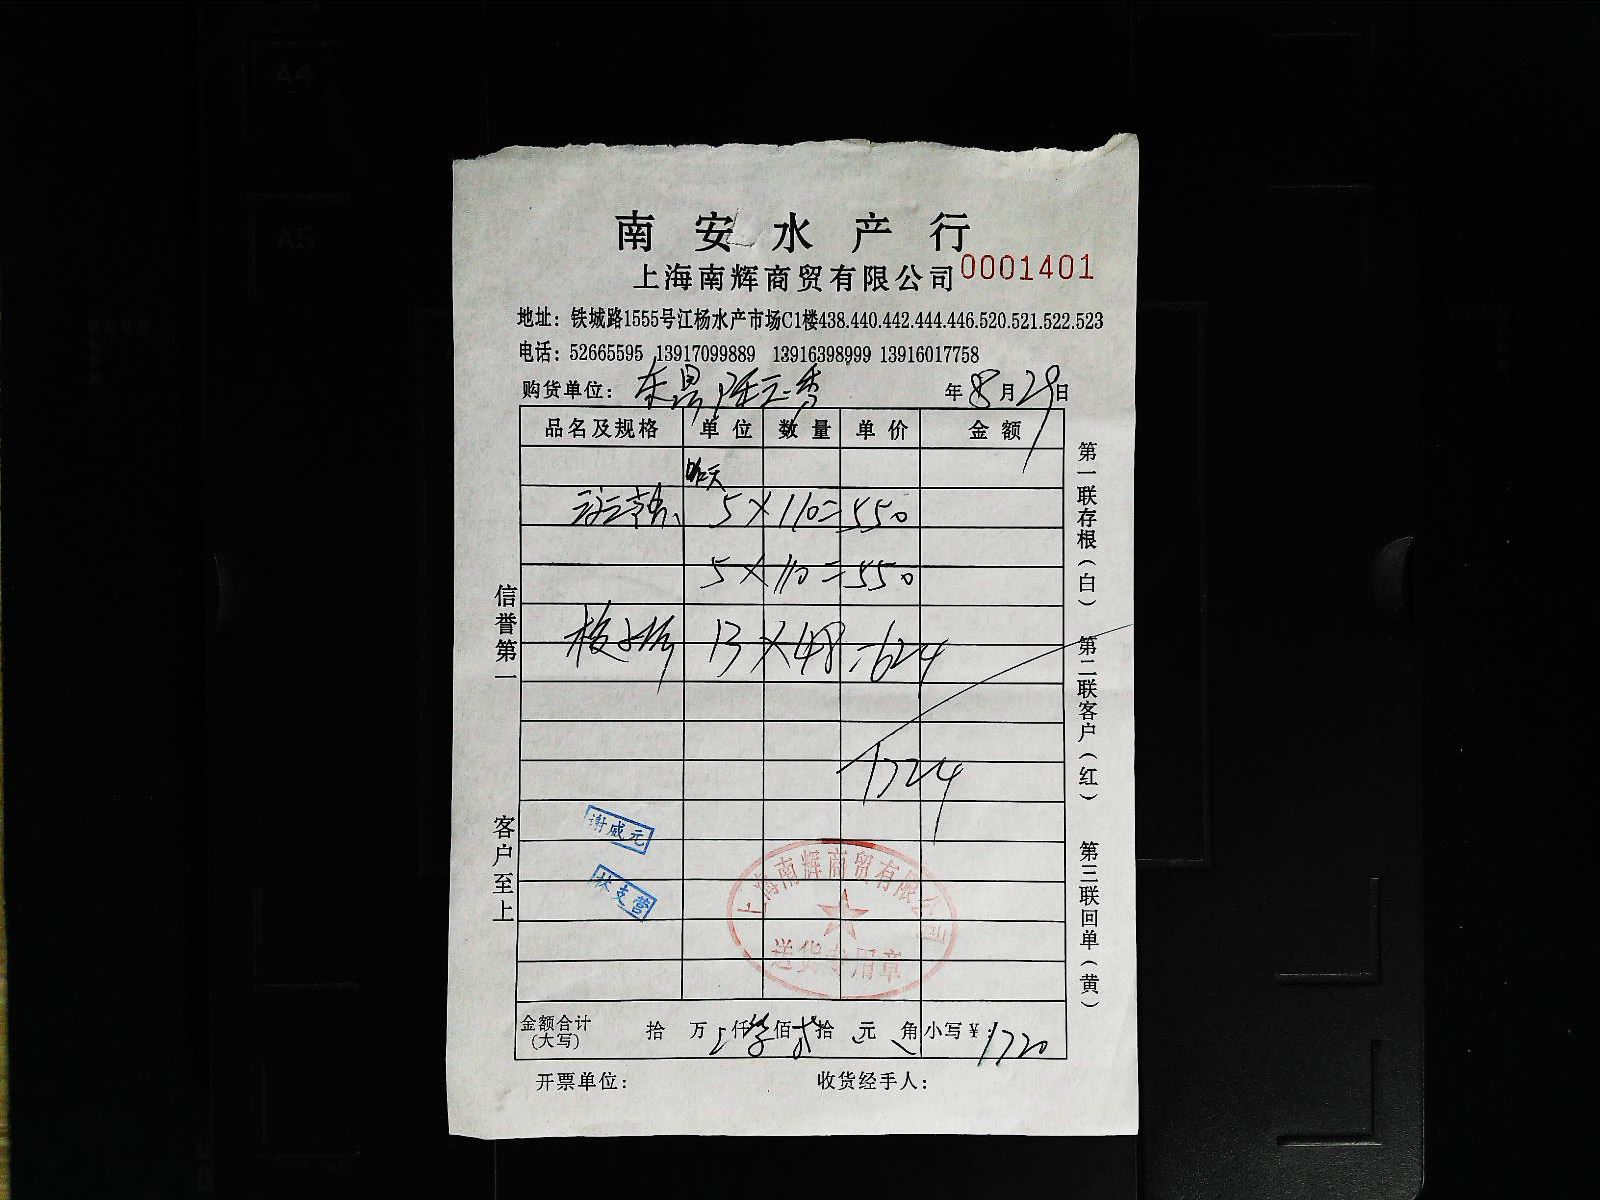 A4
A5
南安水产行
上海南辉商贸有限公司 0001401
地址：铁城路1555号江杨水产市场C1楼438.440.442.444.446.520.521.522.523
电话：52665595 13917099889 13916398999 13916017758
购货单位： 年8月29日
品名及规格 单位 数量 单价 金额
昨天
5×110=550
5×110=550
13×48=624
1724
谢威元
林支营
上海南辉商贸有限公司
送货专用章
金额合计(大写) 拾 万 仟 佰贰拾 元 角 小写¥：1720
开票单位： 收货经手人：
信誉第一 客户至上
第一联存根(白) 第二联客户(红) 第三联回单(黄)